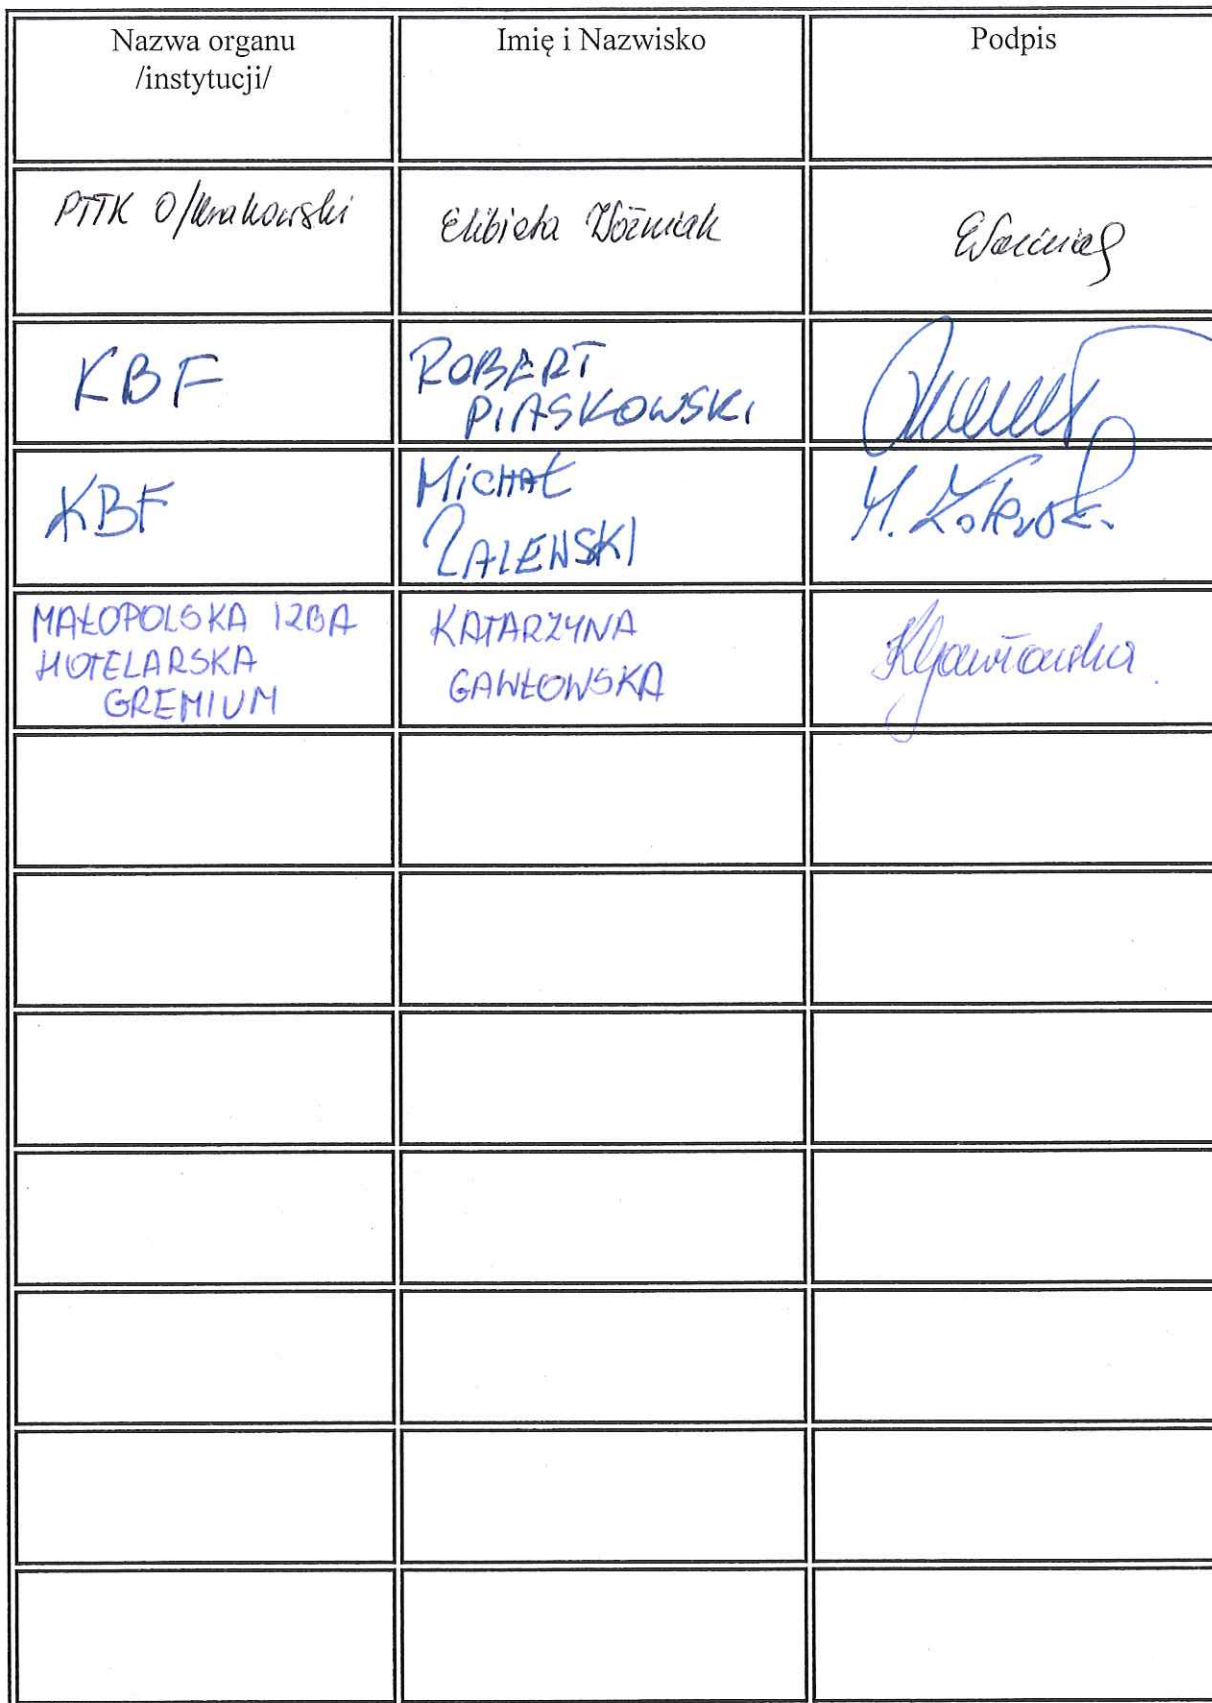 Nazwa organu
/instytucji/
Imię i Nazwisko
Podpis
PTTK O/Krakowski
Elżbieta Woźniak
EWoźniak
KBF
ROBERT
PIASKOWSKI
KBF
MiCHAŁ
ZALEWSKI
MAŁOPOLSKA IZBA
HOTELARSKA
GREMIUM
KATARZYNA
GAWŁOWSKA
KGawłowska